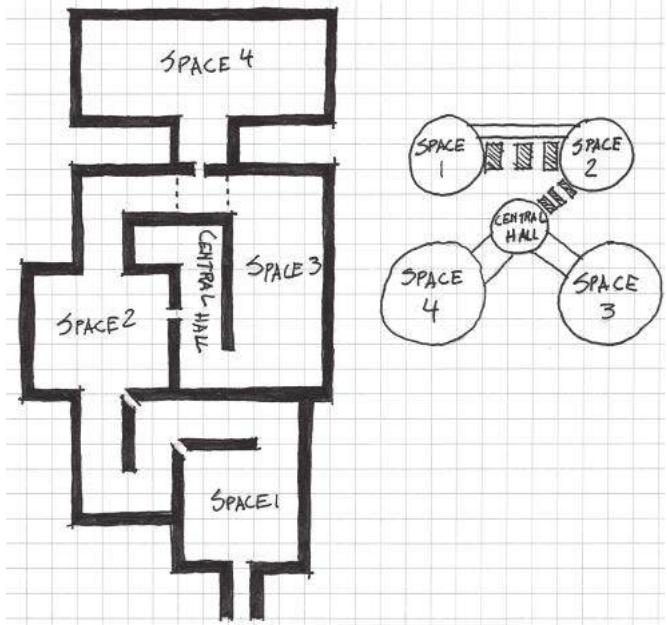 SPACE 4
CENTRAL HALL
SPACE 3
SPACE 2
SPACE 1
SPACE
1
SPACE
2
CENTRAL
HALL
SPACE
4
SPACE
3